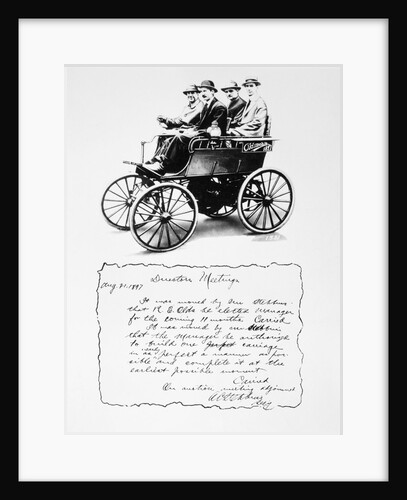 Oldsmobile
Directors Meetings
Aug. 21. 1897
It was moved by Mr Stebbins
that R. E. Olds be elected Manager
for the coming 11 months Carried
It was moved by Mr Stebbins
that the Manager be authorized
to build one perfect carriage
in as nearly perfect a manner as pos-
sible and complete it at the
earliest possible moment
Carried
On motion meeting adjourned
Secy